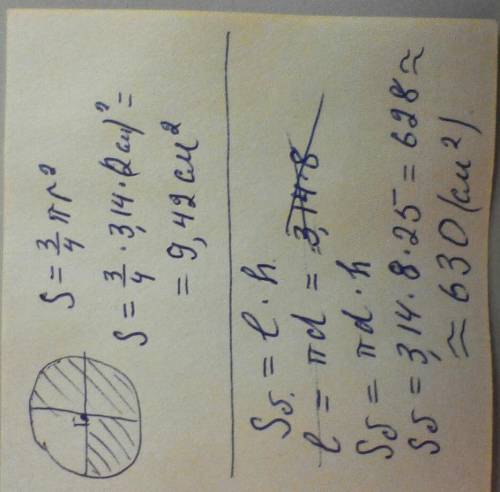 S = 3/4 πr²
S = 3/4 · 3,14 · (2см)² =
= 9,42 см²
Sб. = l · h
l = πd = 3,14 · 8
Sб = πd · h
Sб = 3,14 · 8 · 25 = 628 ≈
≈ 630 (см²)